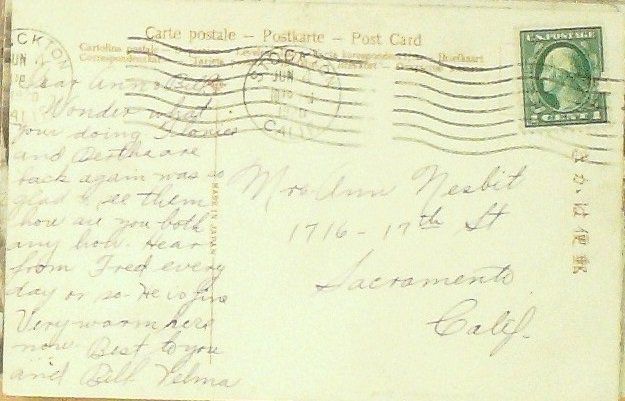 Carte postale – Postkarte – Post Card
Cartolina postale
STOCKTON
JUN
CALIF
U.S. POSTAGE
1 CENT 1
Dear Ann & Bill
Wonder what
your doing
and Bertha are
back again was so
glad to see them
how are you both
any how. Hear
from Fred every
day or so. He is fine
Very warm here
now Best to you
and Bill Velma
MADE IN JAPAN
Mrs Ann Nesbit
1716 – 17th St
Sacramento
Calif.
きかは便郵